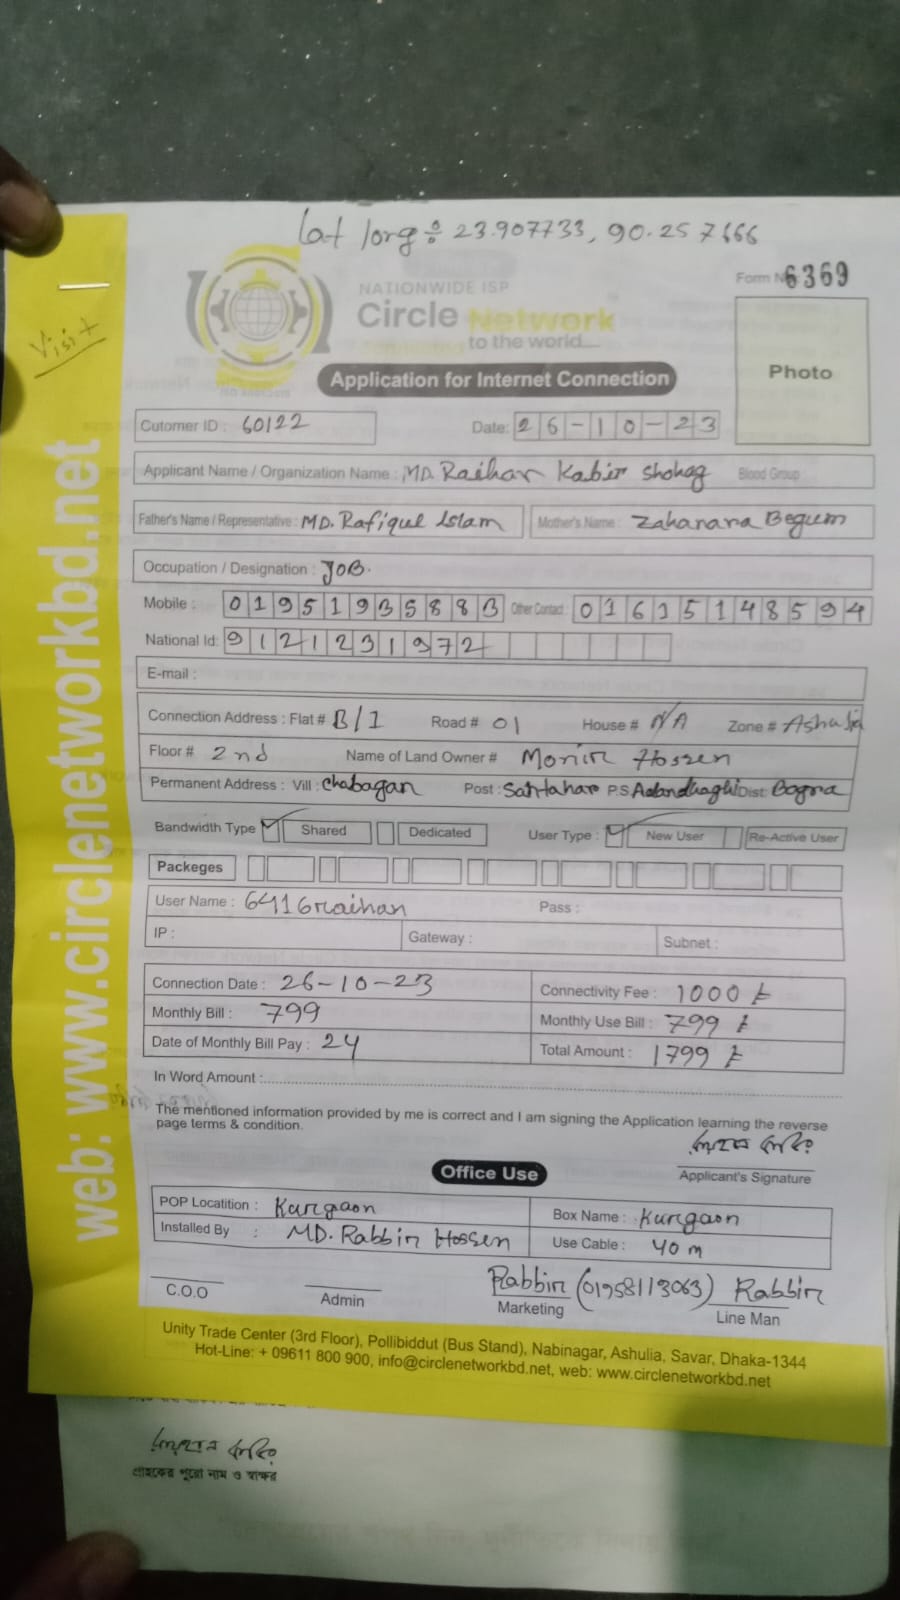 Lat long: 23.907733, 90.257666
Form No 6369
NATIONWIDE ISP
Circle Network
to the world....
Visit
Photo
Application for Internet Connection
Cutomer ID : 60122 Date: 26-10-23
Applicant Name / Organization Name : MD. Raihan Kabir Shohag Blood Group :
Father's Name / Representative : MD. Rafiqul Islam Mother's Name : Zahanara Begum
Occupation / Designation : JOB.
Mobile : 01951935883 Other Contact : 01615148594
National Id: 9121231972
E-mail :
Connection Address : Flat # B/1 Road # 01 House # N/A Zone # Ashulia
Floor # 2nd Name of Land Owner # Monir Hossen
Permanent Address : Vill : Chabagan Post : Santahar P.S Adamdhaghi Dist: Bogra
Bandwidth Type Shared Dedicated User Type : New User Re-Active User
Packeges
User Name : 6416raihan Pass :
IP : Gateway : Subnet :
Connection Date : 26-10-23 Connectivity Fee : 1000 ৳
Monthly Bill : 799 Monthly Use Bill : 799 ৳
Date of Monthly Bill Pay : 24 Total Amount : 1799 ৳
In Word Amount :
The mentioned information provided by me is correct and I am signing the Application learning the reverse
page terms & condition.
Applicant's Signature
Office Use
POP Locatition : Kurgaon Box Name : Kurgaon
Installed By : MD. Rabbir Hossen Use Cable : 40 m
Rabbir (01958113063) Rabbir
C.O.O Admin Marketing Line Man
Unity Trade Center (3rd Floor), Pollibiddut (Bus Stand), Nabinagar, Ashulia, Savar, Dhaka-1344
Hot-Line: + 09611 800 900, info@circlenetworkbd.net, web: www.circlenetworkbd.net
web: www.circlenetworkbd.net
গ্রাহকের পুরো নাম ও স্বাক্ষর